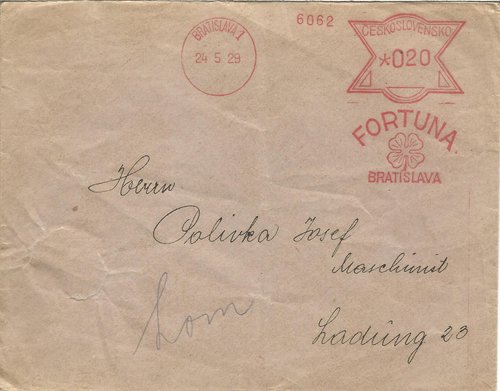 6062
BRATISLAVA 1
24 5 29
ČESKOSLOVENSKO
*020
FORTUNA
BRATISLAVA
Herrn
Polivka Josef
Maschinist
Lom
Ladung 23